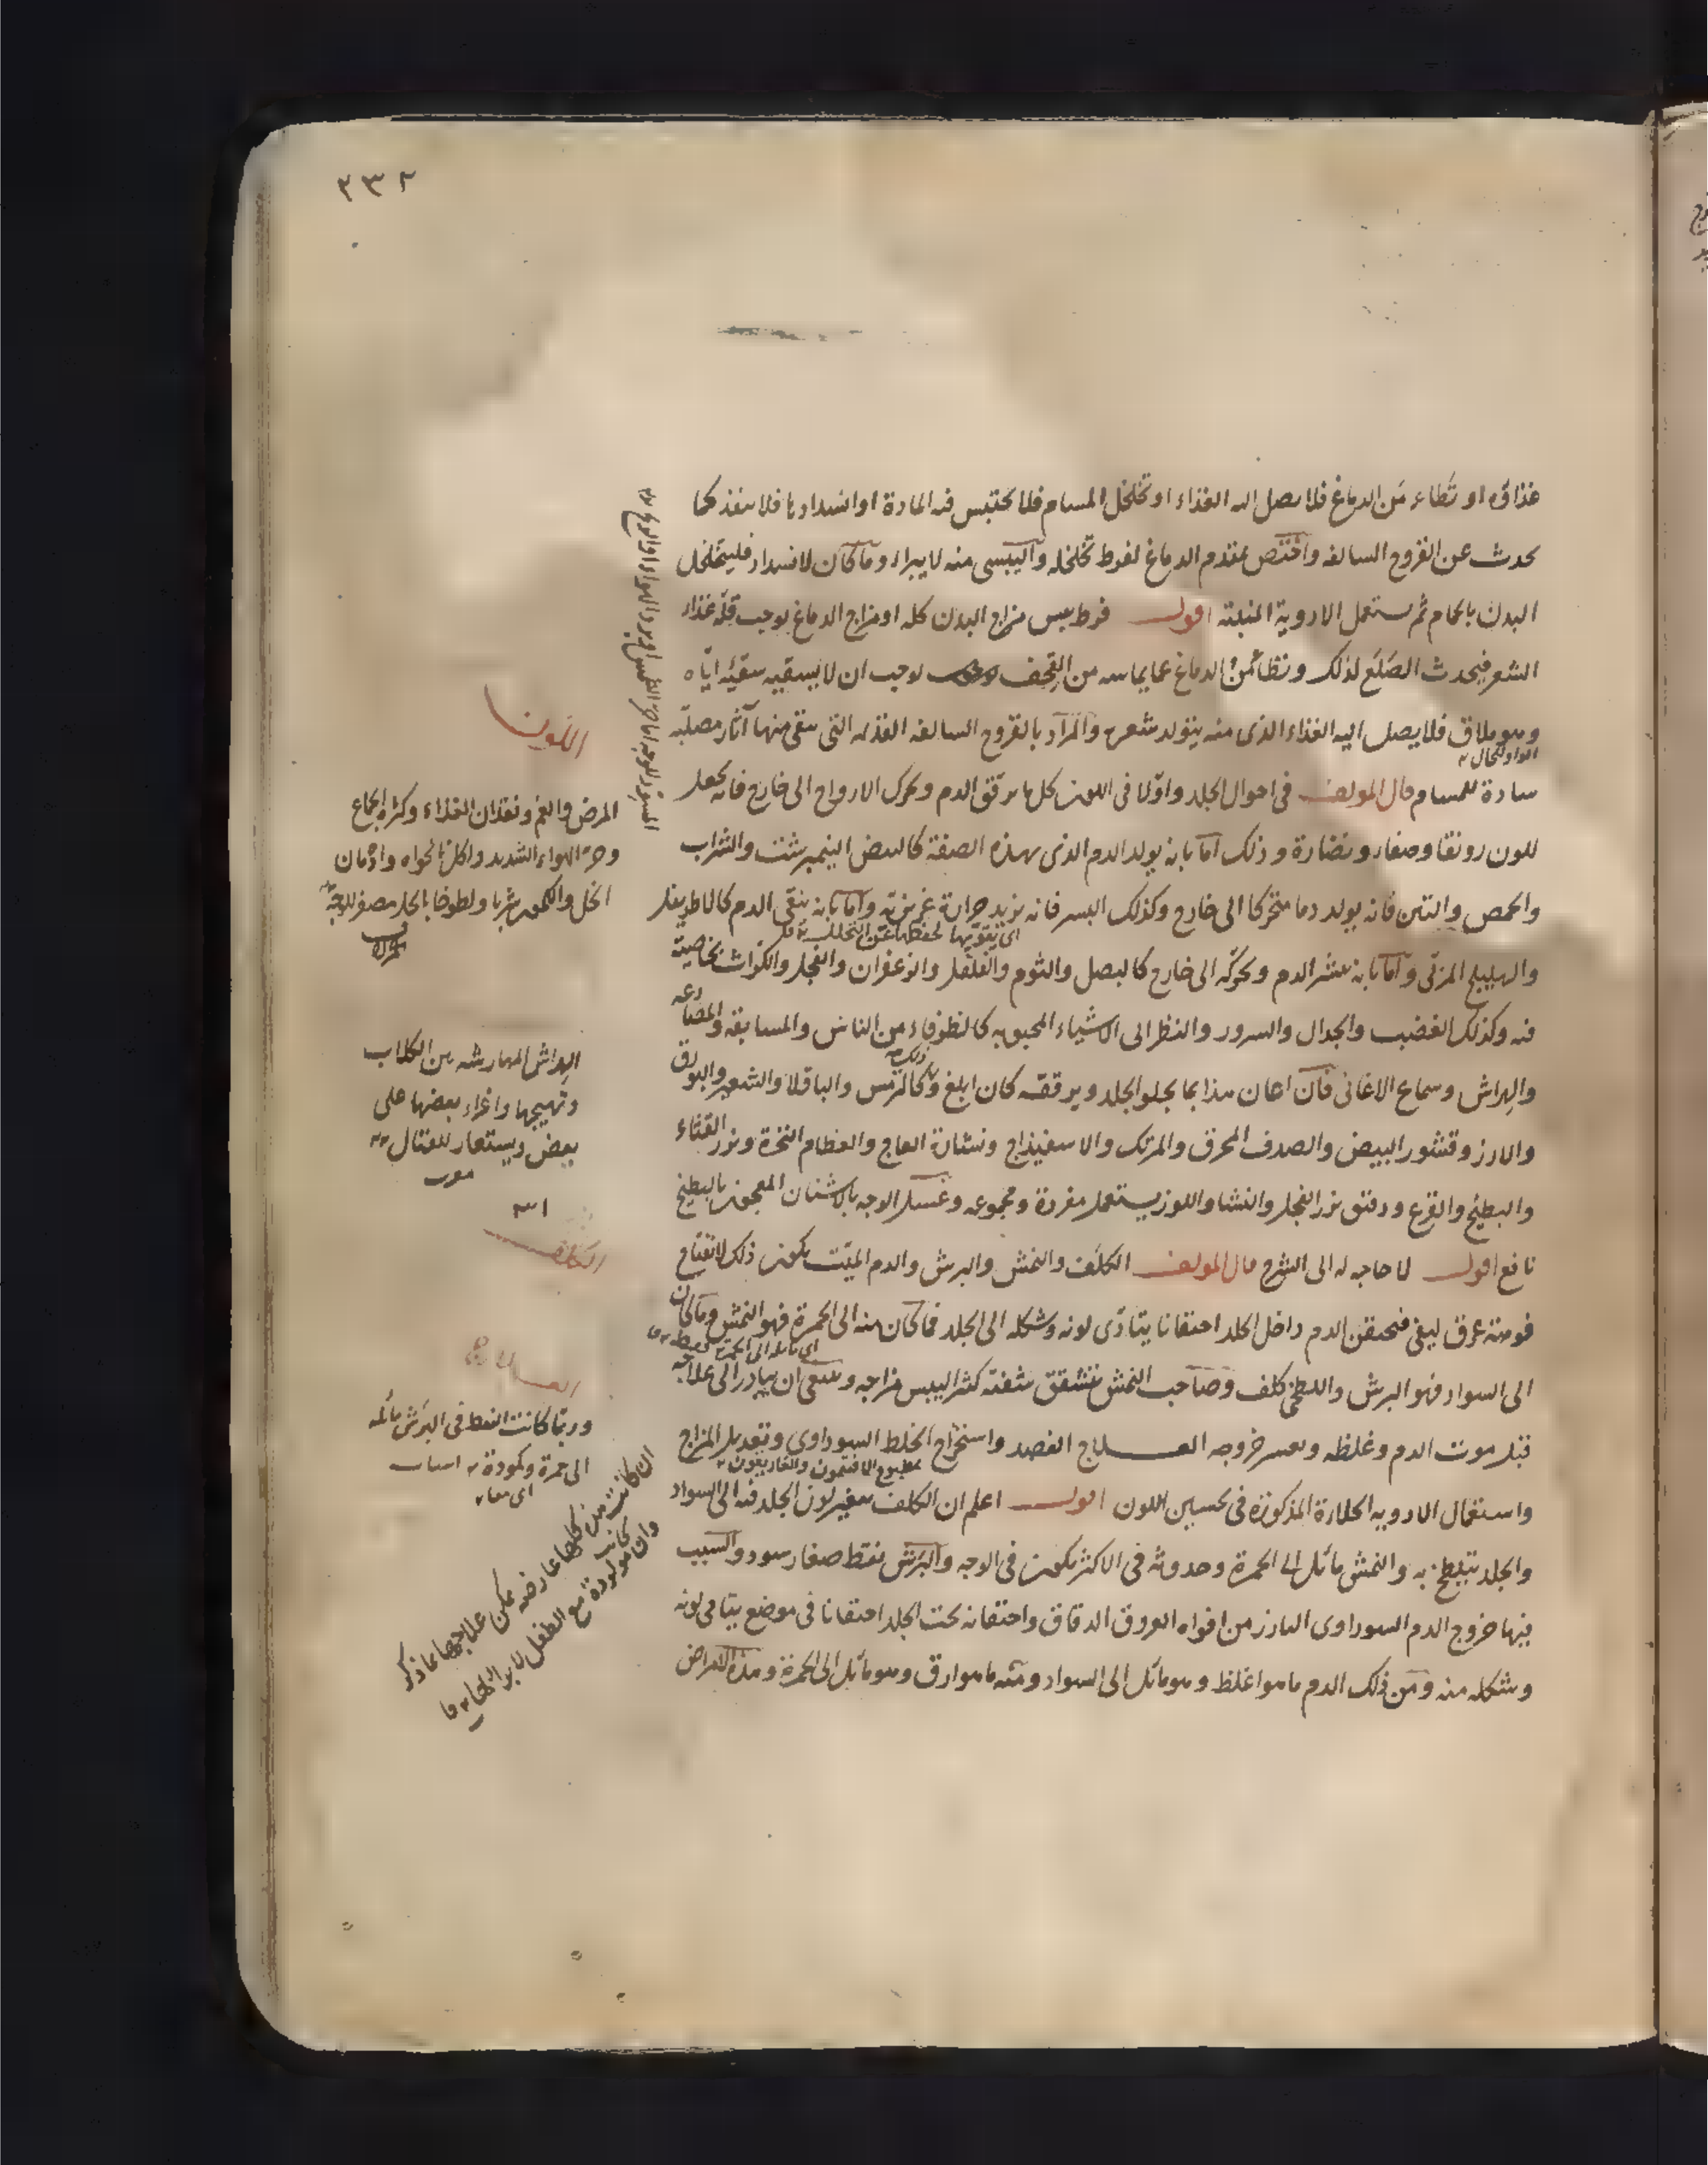 ٢٣٢
غذاؤه او تطامن الدماغ فلا يصل اليه الغذاء او تخلخل المسام فلا تحتبس فيه المادة او انسدادها فلا ينفذ كما
يحدث عن القروح السالفة واختص بمقدم الدماغ لفرط تخلخله واليبسى منه لا يبراء وما كان لانسداد فليتخلخل
البدن بالحمام ثم يستعمل الادوية المنبتة اقول فرط يبس مزاج البدن كله او مزاج الدماغ يوجب قلة غذاء
الشعر فيحدث الصلع لذلك وتطامن الدماغ عما يماسه من القحف يوجب ان لا يسقيه سقيه اياه
وهو ملاق فلا يصل اليه الغذاء الذى منه يتولد شعره والمراد بالقروح السالفة القديمة التى تبقى منها آثار صلبة
سادة للمسام قال المولف فى احوال الجلد واولا فى اللون كل ما يرقق الدم ويحرك الارواح الى خارج فانه يجعل
للون رونقا وصفاء ونضارة وذلك اما بانه يولد الدم الذى بهذه الصفة كالبيض النيمبرشت والشراب
والحمص والتين فانه يولد دما متحركا الى خارج وكذلك البسر فانه يزيد حرارة غريزية واما بانه ينقى الدم كالاطريفل
اى يقويها لحفظها عن التحلل
والهليلج المربى واما بانه ينشر الدم ويحركه الى خارج كالبصل والثوم والفلفل والزعفران والفجل والكراث بخاصية
فيه وكذلك الغضب والجدال والسرور والنظر الى الاشياء المحبوبه كالظرفاء من الناس والمسابقة والمصارعه
والهراش وسماع الاغانى فان اعان هذا بما يجلو الجلد ويرققه كان ابلغ وذلك كالترمس والباقلا والشعير والبورق
والارز وقشور البيض والصدف المحرق والمرتك والاسفيذاج ونشارة العاج والعظام النخرة وبزر القثاء
والبطيخ والقرع ودقيق بزر الفجل والنشا واللوز يستعمل مفردة ومجموعه وغسل الوجه بالاشنان المعجون بالبطيخ
نافع اقول لا حاجه له الى الشرح قال المولف الكلف والنمش والبرش والدم الميت يكون ذلك لانفتاح
فوهة عرق ليفى فيحتقن الدم داخل الجلد احتقانا يتادى لونه وشكله الى الجلد فما كان منه الى الحمرة فهو النمش وما كان
الى السواد فهو البرش واللطخى كلف وصاحب النمش تتشقق شفته كثيرا ليبس مزاجه وينبغى ان يبادر الى علاجه
قبل موت الدم وغلظه وعسر خروجه العلاج الفصد واستخراج الخلط السوداوى وتعديل المزاج
بمطبوخ الافتيمون والغاريقون
واستعمال الادويه الجلاءة المذكورة فى تحسين اللون اقول اعلم ان الكلف تغير لون الجلد فيه الى السواد
والجلد يتلطخ به والنمش مائل الى الحمرة وحدوثه فى الاكثر يكون فى الوجه والبرش نقط صغار سود والسبب
فيها خروج الدم السوداوى البارز من افواه العروق الدقاق واحتقانه تحت الجلد احتقانا فى موضع يتادى لونه
وشكله منه ومن ذلك الدم ما هو اغلظ وهو مائل الى السواد ومنه ما هو ارق وهو مائل الى الحمرة وهذه الامراض
اللون
المرض والغم وفقدان الغذاء وكثرة الجماع
وحر الهواء الشديد واكل الحواه وادمان
الخل والكمون شربا ولطوخا بالخل مصفر للوجه
الهراش المهارشه بين الكلاب
وتهييجها واغراء بعضها على
بعض ويستعار للقتال
الكلف
العلاج
وربما كانت النقط فى البرش مائله
الى حمرة وكمودة
ان كانت هذه كلها عارضه يمكن علاجها بما ذكر
وان كانت مولودة مع الطفل لا برء لها